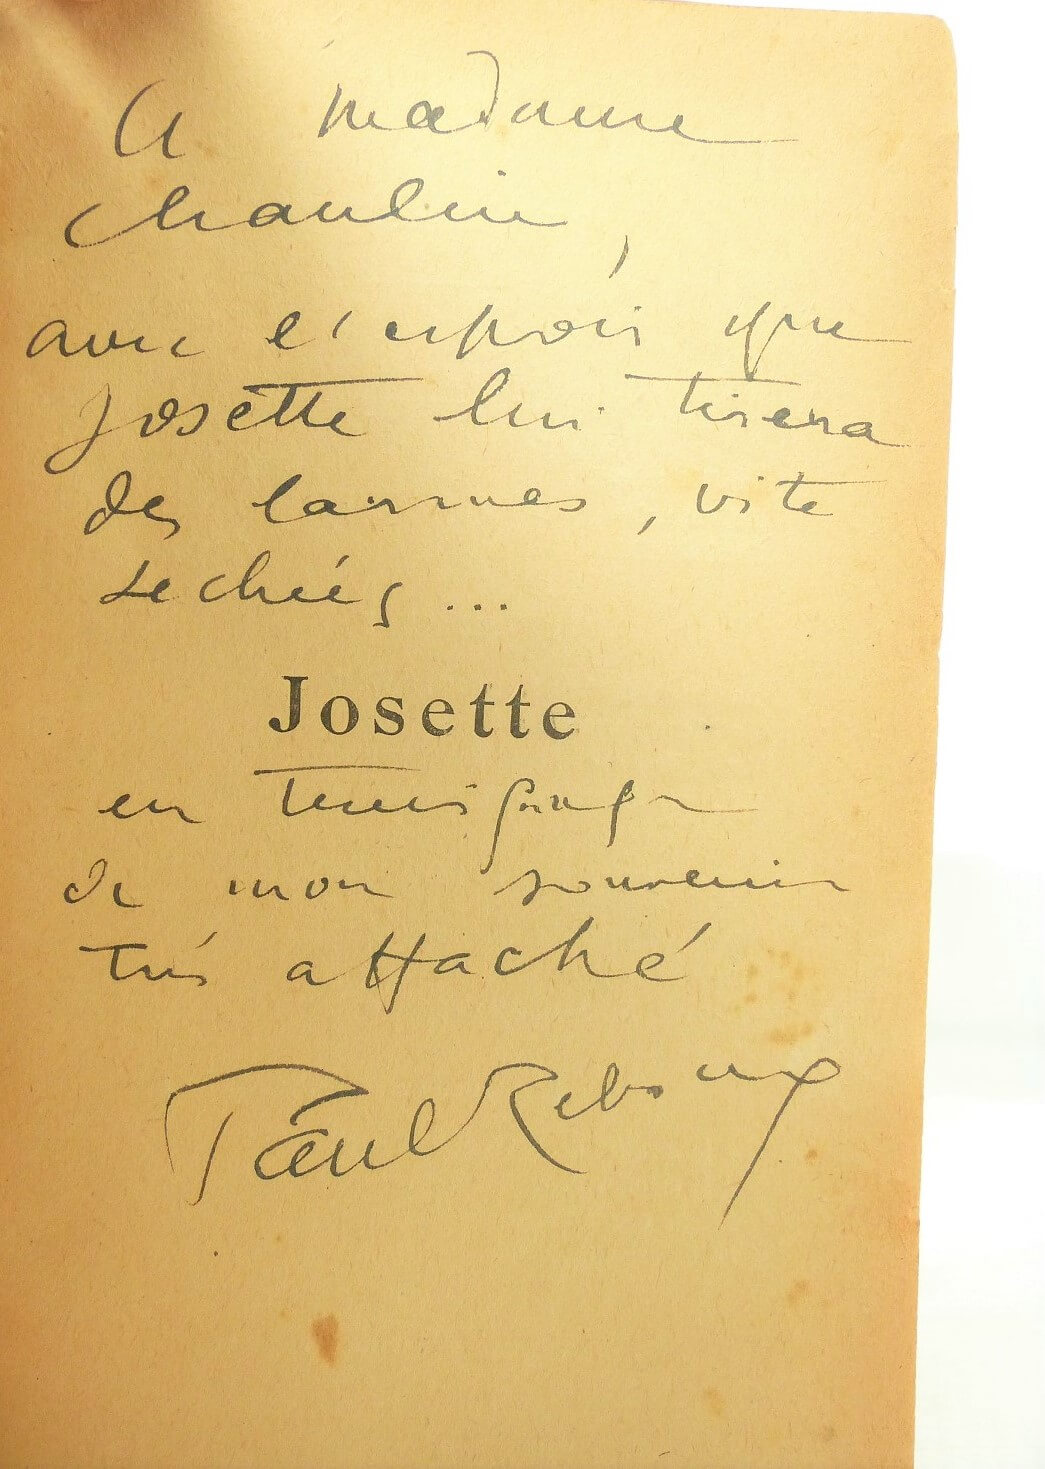 A Madame
Chaulin,
avec l'espoir que
Josette lui tirera
des larmes, vite
sechées...
Josette
en temoignage
de mon souvenir
très attaché
Paul Reboux